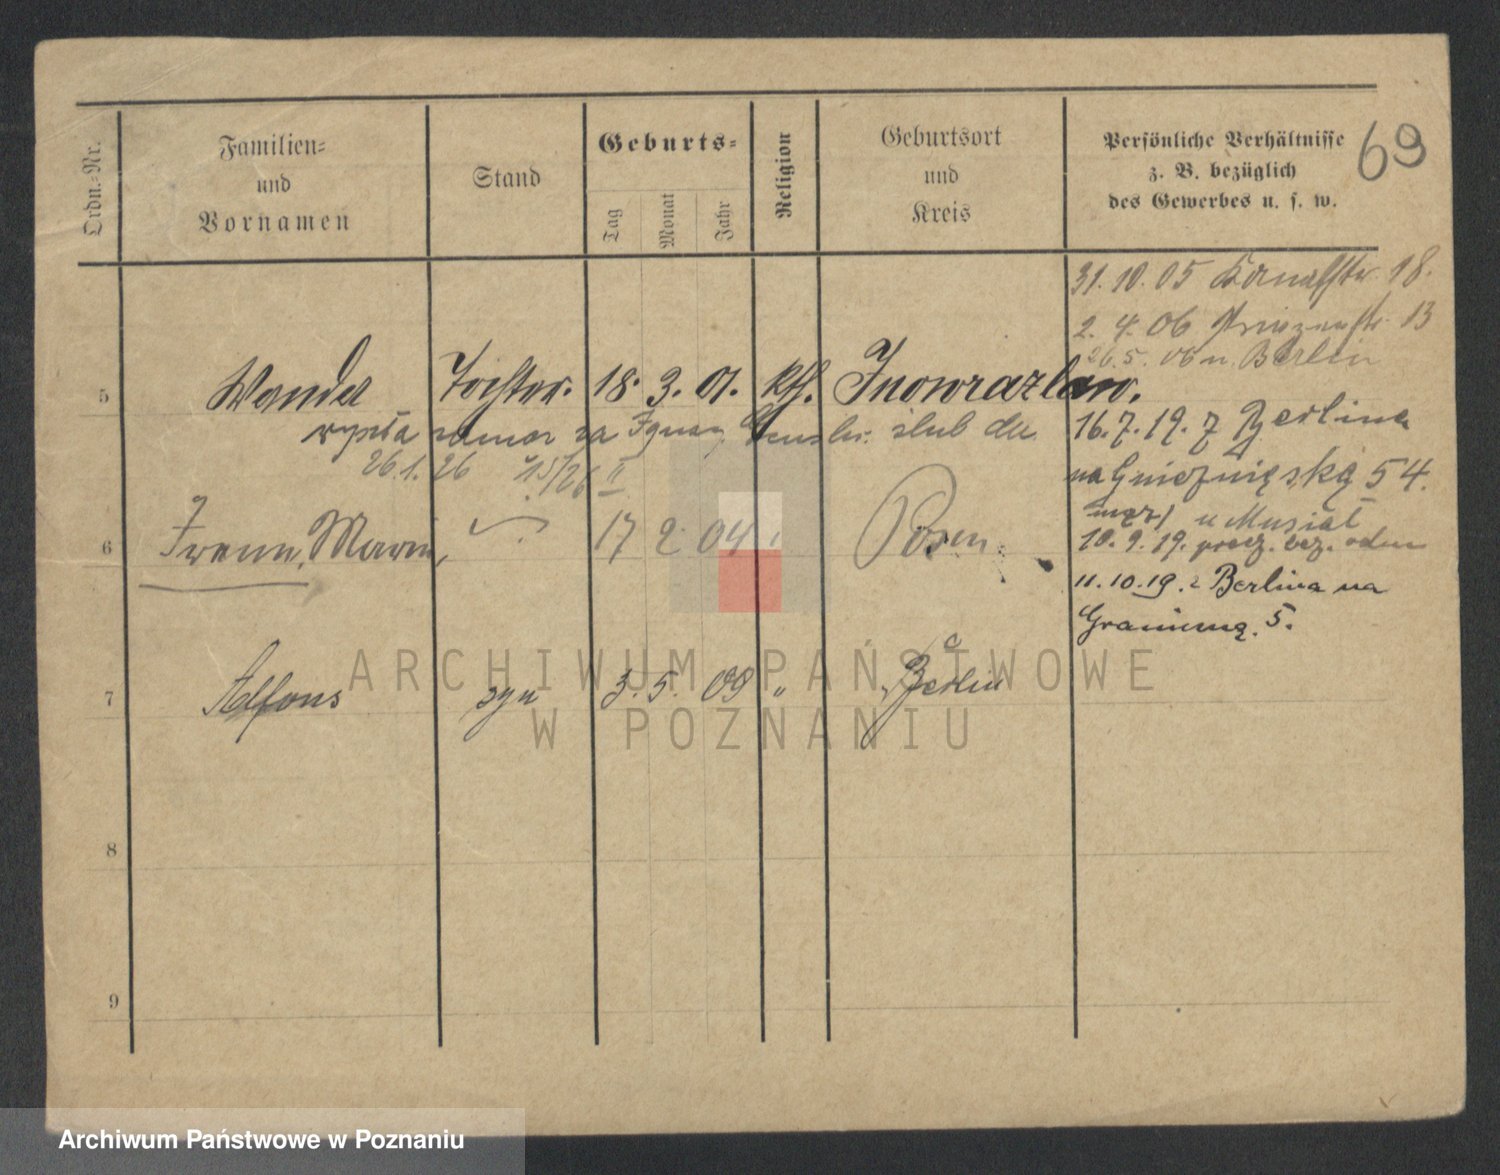 Ordn.-Nr.
Familien-
und
Vornamen
Stand
Geburts-
Tag
Monat
Jahr
Religion
Geburtsort
und
Kreis
Persönliche Verhältnisse
z. B. bezüglich
des Gewerbes u. s. w.
69
31. 10. 05 Kanalstr. 18.
2. 4. 06 Prinzenstr. 13
26.5. 06 n. Berlin
5 Wanda Tochter. 18. 3. 01. kth. Inowrazlaw.
wyszła zamąż za Ignacy ślub dn.
26.1.26 15/26 II
16. 7. 19. z Berlina
na Gnieźnięską 54.
u Musiał
6 Irena, Maria, 17 2. 04 Posen
10. 9. 19.
11. 10. 19. z Berlina na
Graniczną. 5.
7 Alfons syn 3. 5. 09 " Berlin
8
9
ARCHIWUM PAŃSTWOWE
W POZNANIU
Archiwum Państwowe w Poznaniu